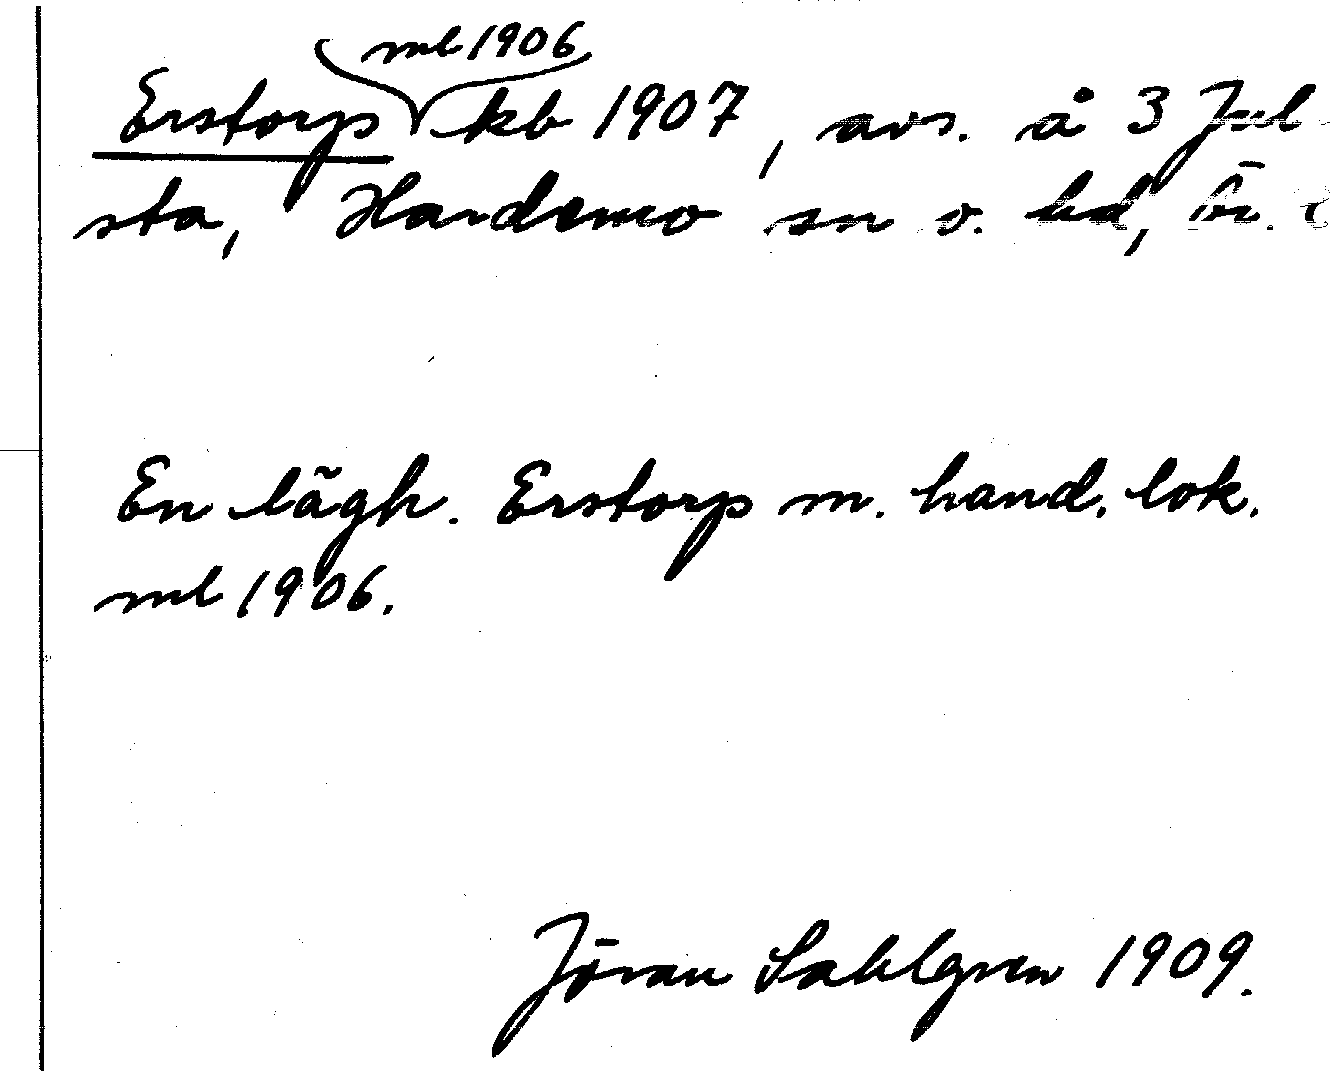 ml 1906
Erstorp kb 1907, avs. å 3 Jul
sta, Hardemo sn o. hd, Ör.
En lägh. Erstorp m. hand. lok.
ml 1906.
Jöran Sahlgren 1909.